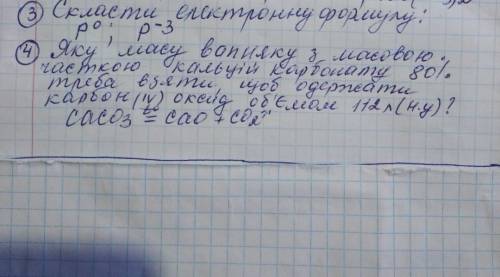 ③ Скласти електронну формулу:
p⁰; p⁻³
④ Яку масу вапняку з масовою
часткою кальцій карбонату 80%
треба взяти, щоб одержати
карбон (IV) оксид об'ємом 112 л (н.у)?
CaCO₃ = CaO + CO₂↑